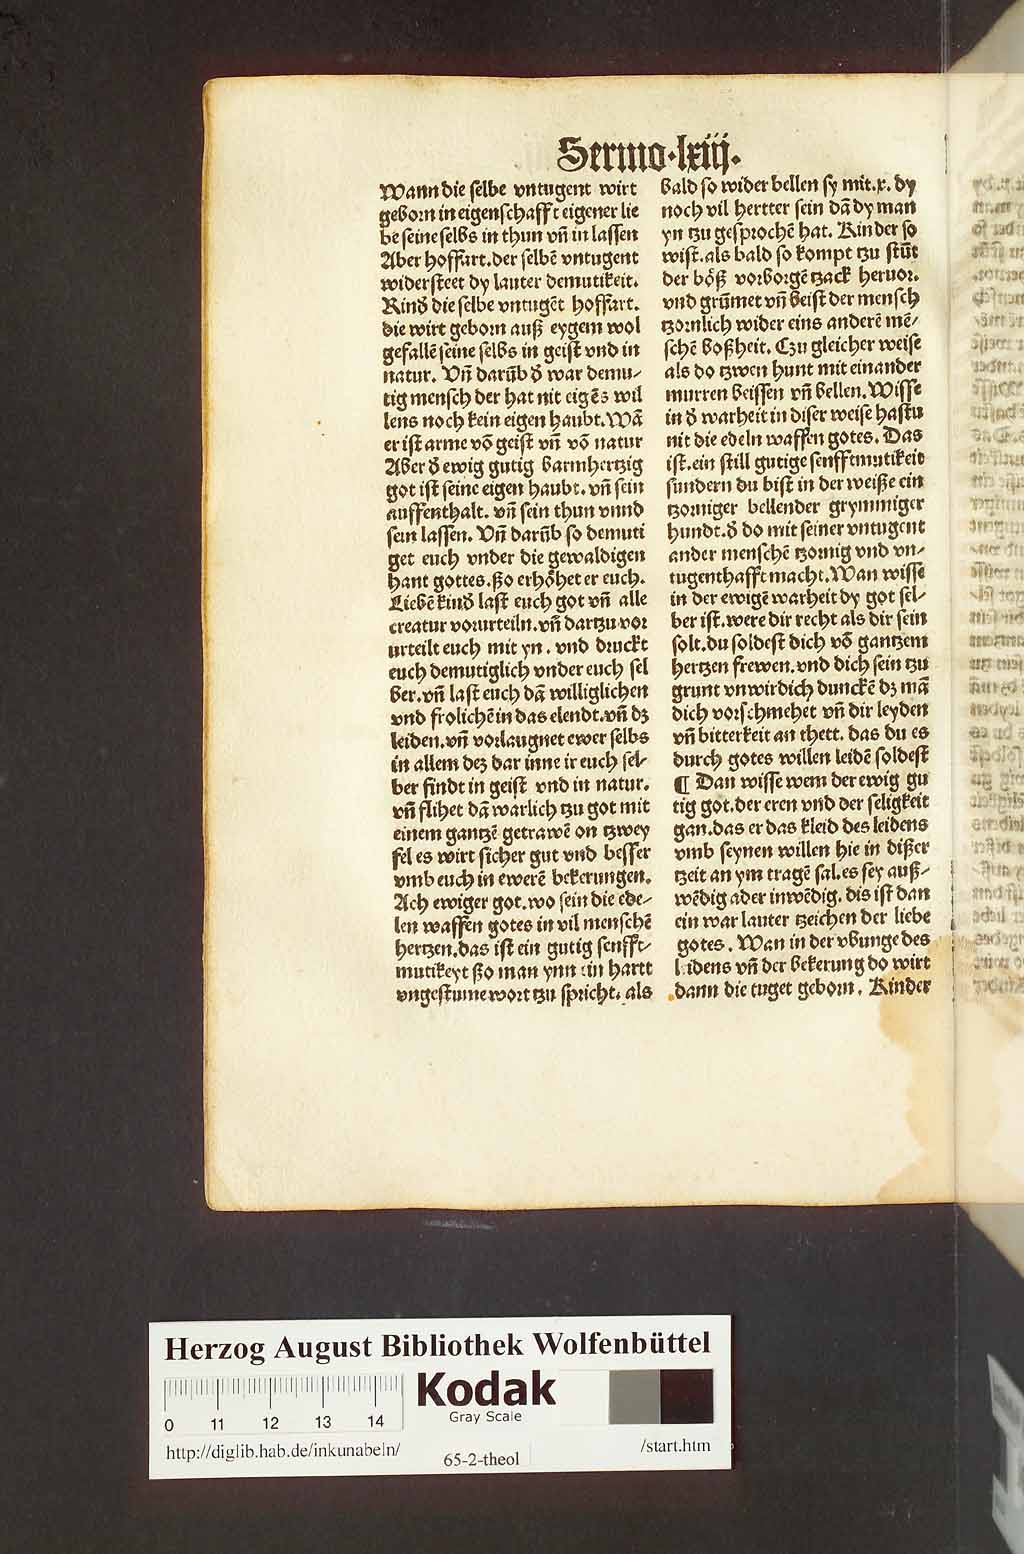 Sermo·lxiij.
Wann die selbe vntugent wirt
geborn in eigenschafft eigener lie
be seine selbs in thun vn̄ in lassen
Aber hoffart. der selbē vntugent
widersteet dy lauter demutikeit.
Kinď die selbe vntugēt hoffart.
die wirt geborn auß eygem wol
gefallē seine selbs in geist vnd in
natur. Vn̄ darūb ď war demu-
tig mensch der hat nit eigēs wil
lens noch kein eigen haubt. Wā
er ist arme vō geist vn̄ vō natur
Aber ď ewig gutig barmhertzig
got ist seine eigen haubt. vn̄ sein
auffenthalt. vn̄ sein thun vnnd
sein lassen. Vn̄ darūb so demuti
get euch vnder die gewaldigen
hant gottes. ßo erhöhet er euch.
Liebē kinď last euch got vn̄ alle
creatur vorurteiln. vn̄ dartzu vor
urteilt euch mit yn. vnd druckt
euch demutiglich vnder euch sel
ber. vn̄ last euch dā williglichen
vnd frolichē in das elendt. vn̄ dz
leiden. vn̄ vorlaugnet ewer selbs
in allem dez dar inne ir euch sel-
ber findt in geist vnd in natur.
vn̄ flihet dā warlich tzu got mit
einem gantzē getrawē on tzwey
fel es wirt sicher gut vnd besser
vmb euch in ewerē bekerungen.
Ach ewiger got. wo sein die ede-
len waffen gotes in vil menschē
hertzen. das ist ein gutig senfft-
mutikeyt ßo man ynn ein hartt
vngestume wort tzu spricht. als
bald so wider bellen sy mit. x. dy
noch vil hertter sein dā dy man
yn tzu gesprochē hat. Kinder so
wist. als bald so kompt tzu stūt
der böß vorborgē tzack heruor.
vnd grūmet vn̄ beist der mensch
tzornlich wider eins anderē mē-
schē boßheit. Czu gleicher weise
als do tzwen hunt mit einander
murren beissen vn̄ bellen. Wisse
in ď warheit in diser weise hastu
nit die edeln waffen gotes. Das
ist. ein still gutige senfftmutikeit
sundern du bist in der weiße ein
tzorniger bellender grymmiger
hundt. ď do mit seiner vntugent
ander menschē tzornig vnd vn-
tugenthafft macht. Wan wisse
in der ewigē warheit dy got sel-
ber ist. were dir recht als dir sein
solt. du soldest dich vō gantzem
hertzen frewen. vnd dich sein tzu
grunt vnwirdich dunckē dz mā
dich vorschmehet vn̄ dir leyden
vn̄ bitterkeit an thett. das du es
durch gotes willen leidē soldest
¶ Dan wisse wem der ewig gu
tig got. der eren vnd der seligkeit
gan. das er das kleid des leidens
vmb seynen willen hie in dißer
tzeit an ym tragē sal. es sey auß-
wēdig ader inwēdig. dis ist dan
ein war lauter tzeichen der liebe
gotes. Wan in der vbunge des
leidens vn̄ der bekerung do wirt
dann die tuget geborn. Kinder
Herzog August Bibliothek Wolfenbüttel
0 11 12 13 14
Kodak
Gray Scale
http://diglib.hab.de/inkunabeln/
65-2-theol
/start.htm